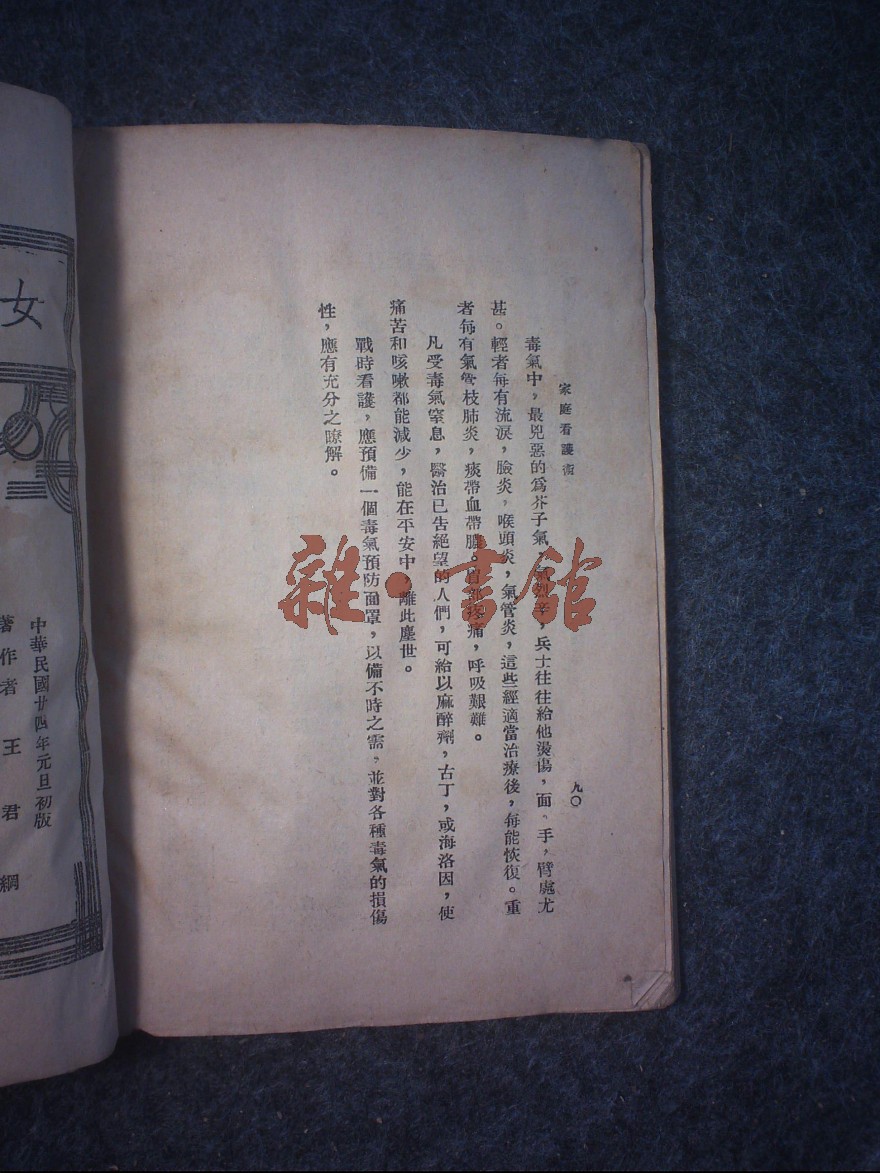 家庭看護術
九〇
毒氣中，最兇惡的為芥子氣，氣烈辛，兵士往往給他燙傷，面、手，臂處尤
甚。輕者每有流淚，臉炎，喉頭炎，氣管炎，這些經適當治療後，每能恢復。重
者每有氣管枝肺炎，痰帶血帶膿。胃部疼痛，呼吸艱難。
凡受毒氣窒息，醫治已告絕望的人們，可給以麻醉劑，古丁，或海洛因，使
痛苦和咳嗽都能減少，能在平安中，離此塵世。
戰時看護，應預備一個毒氣預防面罩，以備不時之需，並對各種毒氣的損傷
性，應有充分之瞭解。
雜·書館
女
中華民國廿四年元旦初版
著作者 王君綱